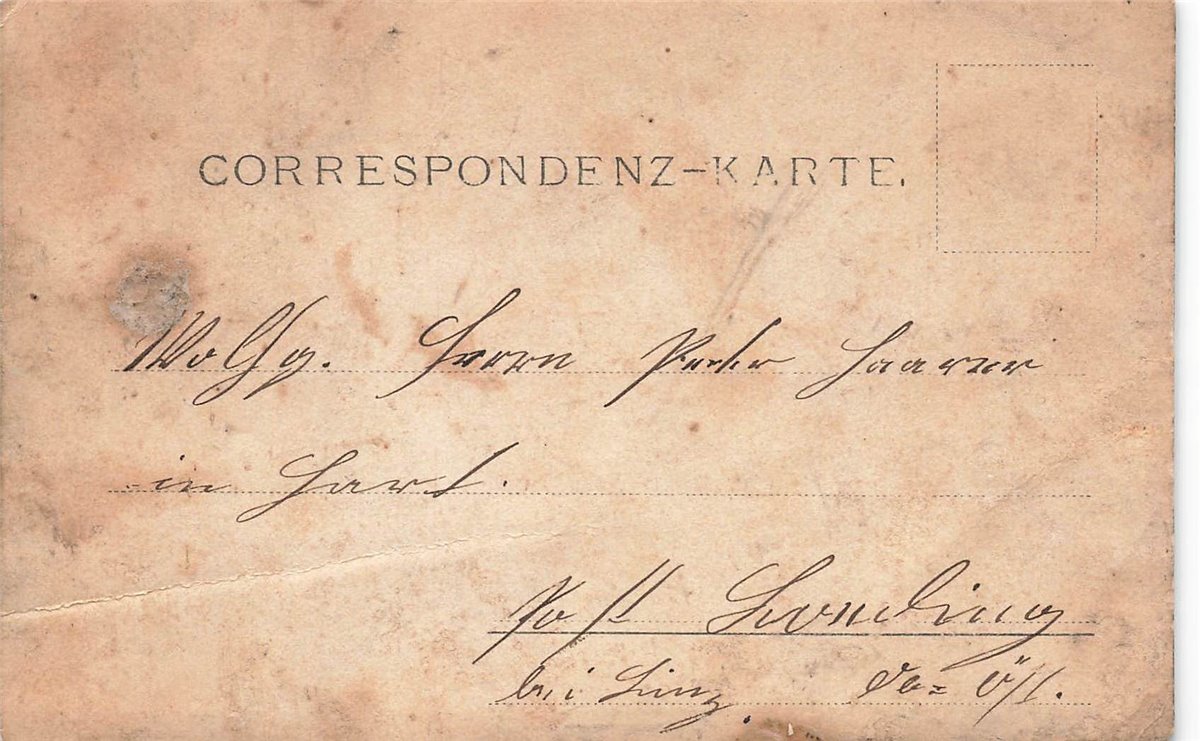 CORRESPONDENZ-KARTE.
WolGg. Herrn Peter Haarer
in Hart.
Post Leonding
bei Linz Ob= Öst.